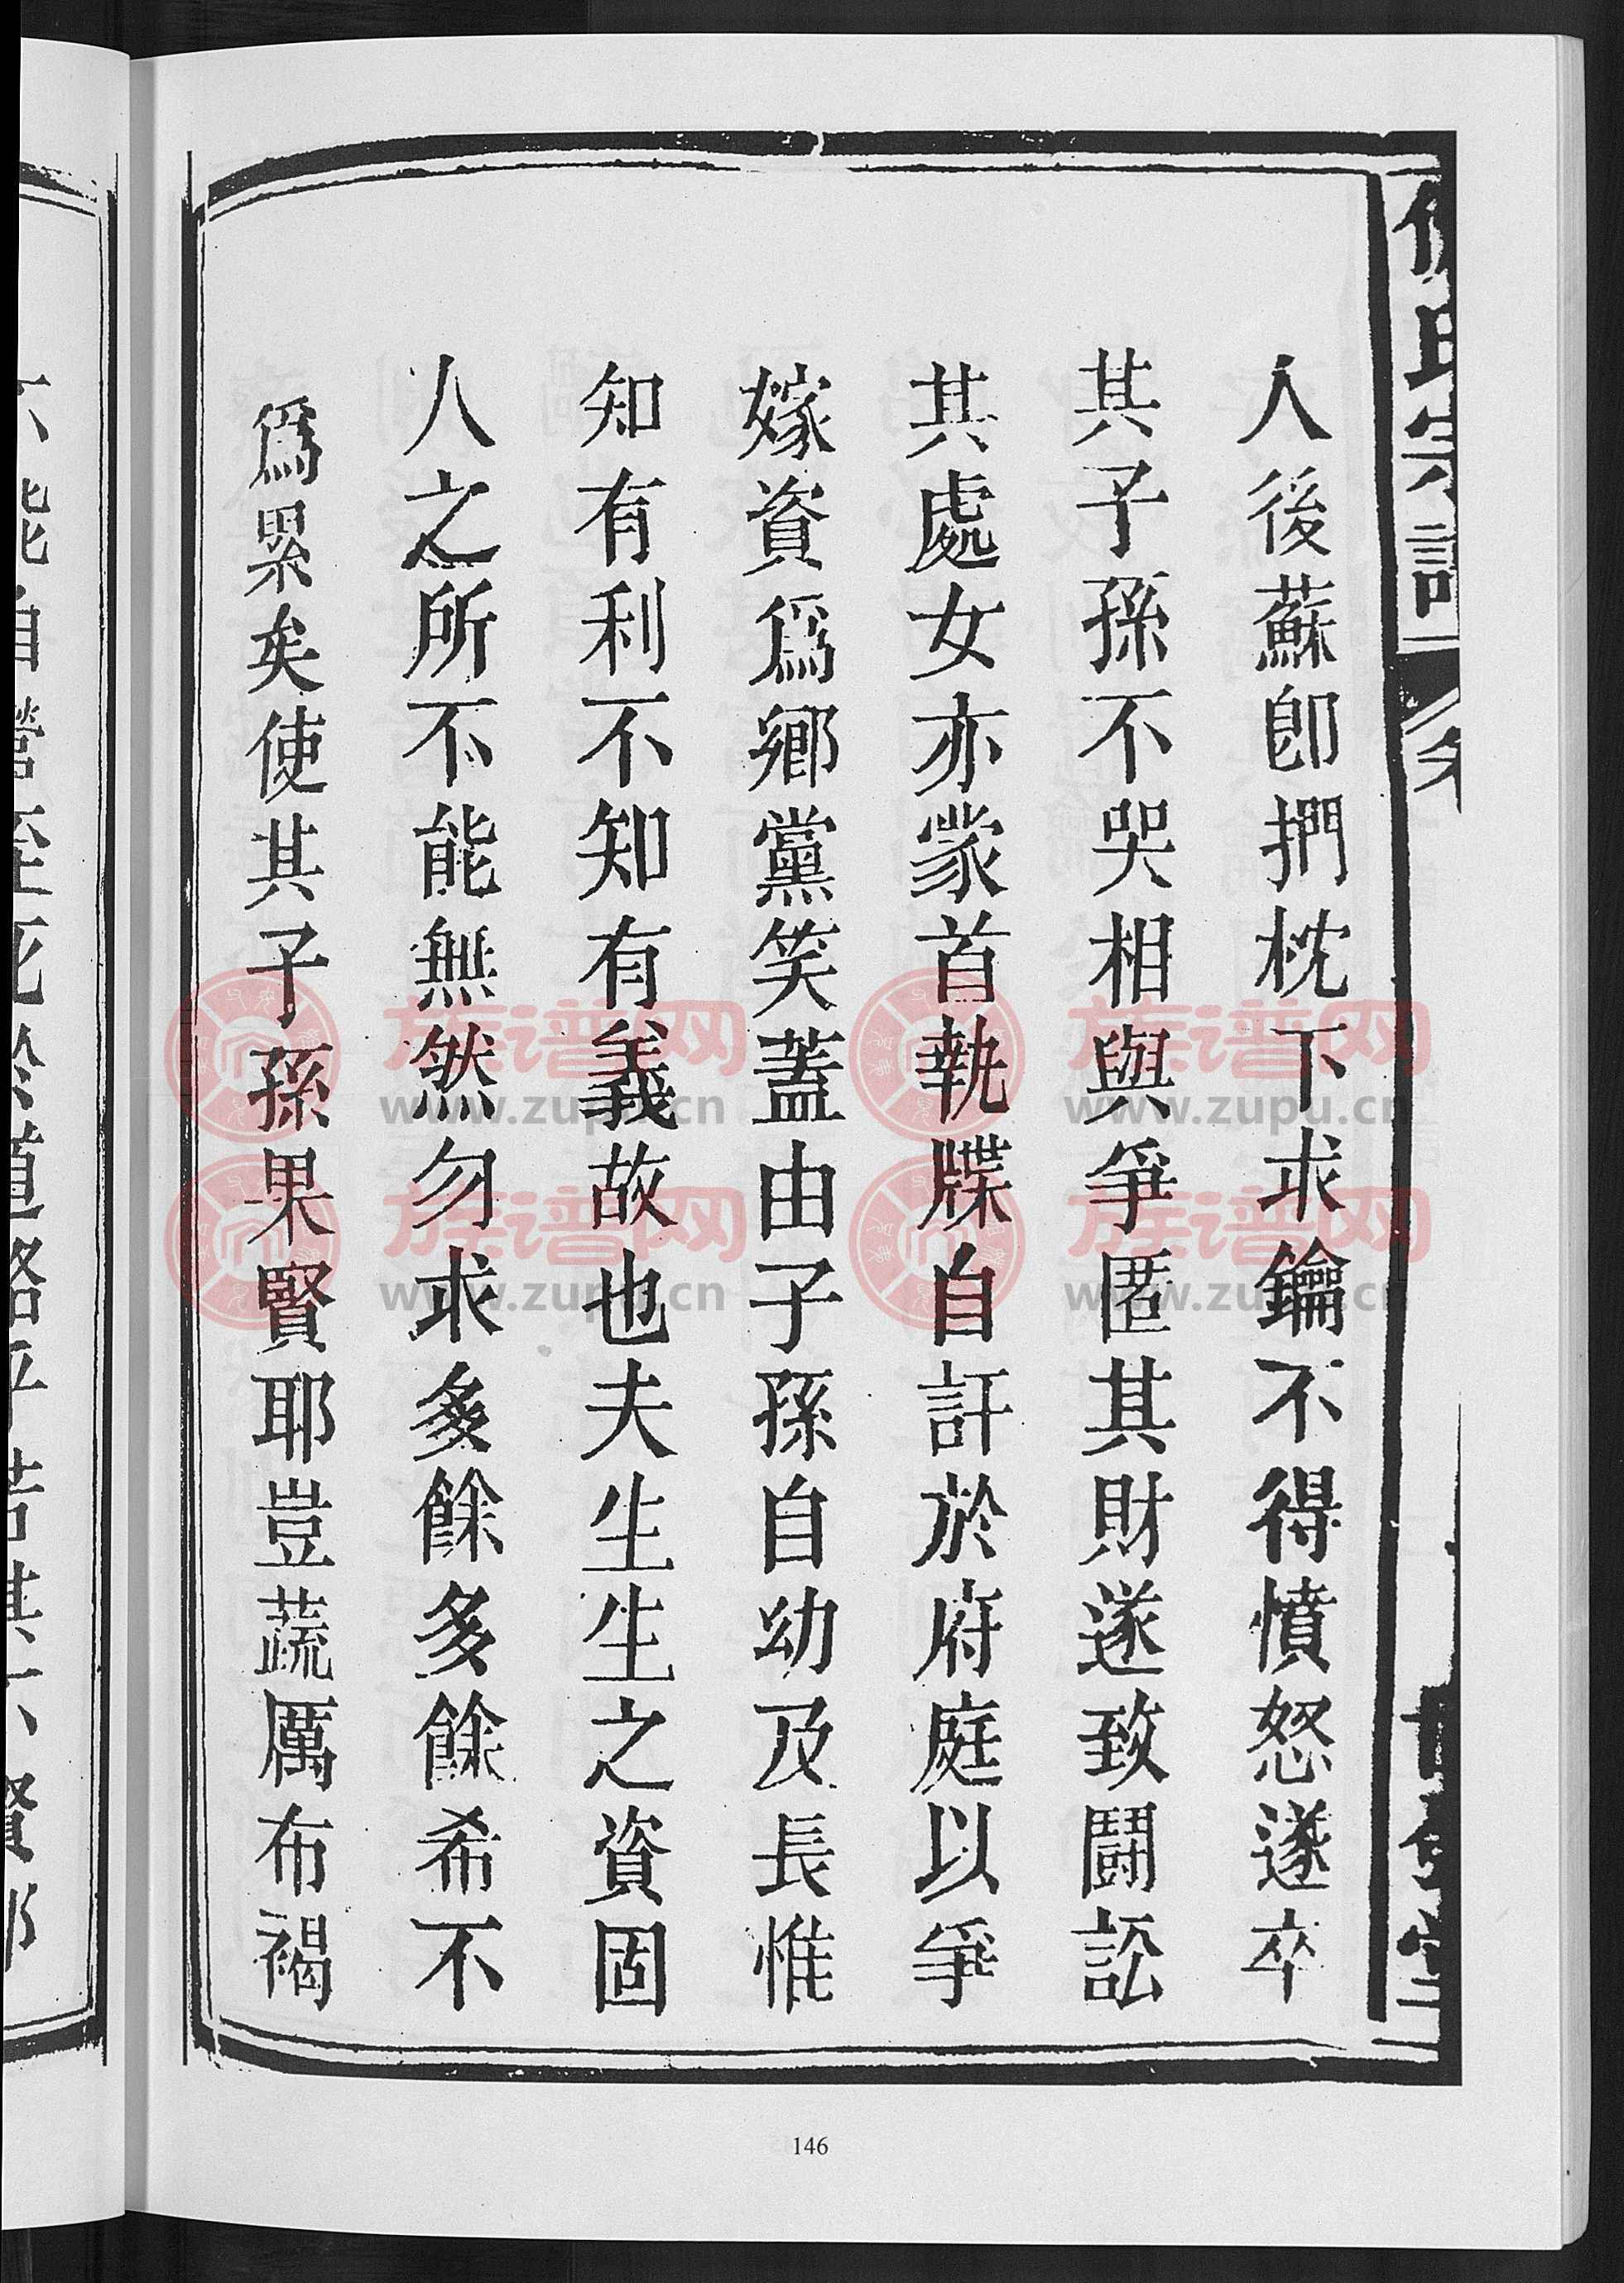 人後蘇卽捫枕下求鑰不得憤怒遂卒
其子孫不哭相與爭匿其財遂致鬪訟
其處女亦蒙首執牒自訐於府庭以爭
嫁資爲鄉黨笑蓋由子孫自幼及長惟
知有利不知有義故也夫生生之資固
人之所不能無然勿求多餘多餘希不
爲累矣使其子孫果賢耶豈蔬厲布褐
族谱网
www.zupu.cn
族谱网
www.zupu.cn
族谱网
www.zupu.cn
族谱网
www.zupu.cn
146